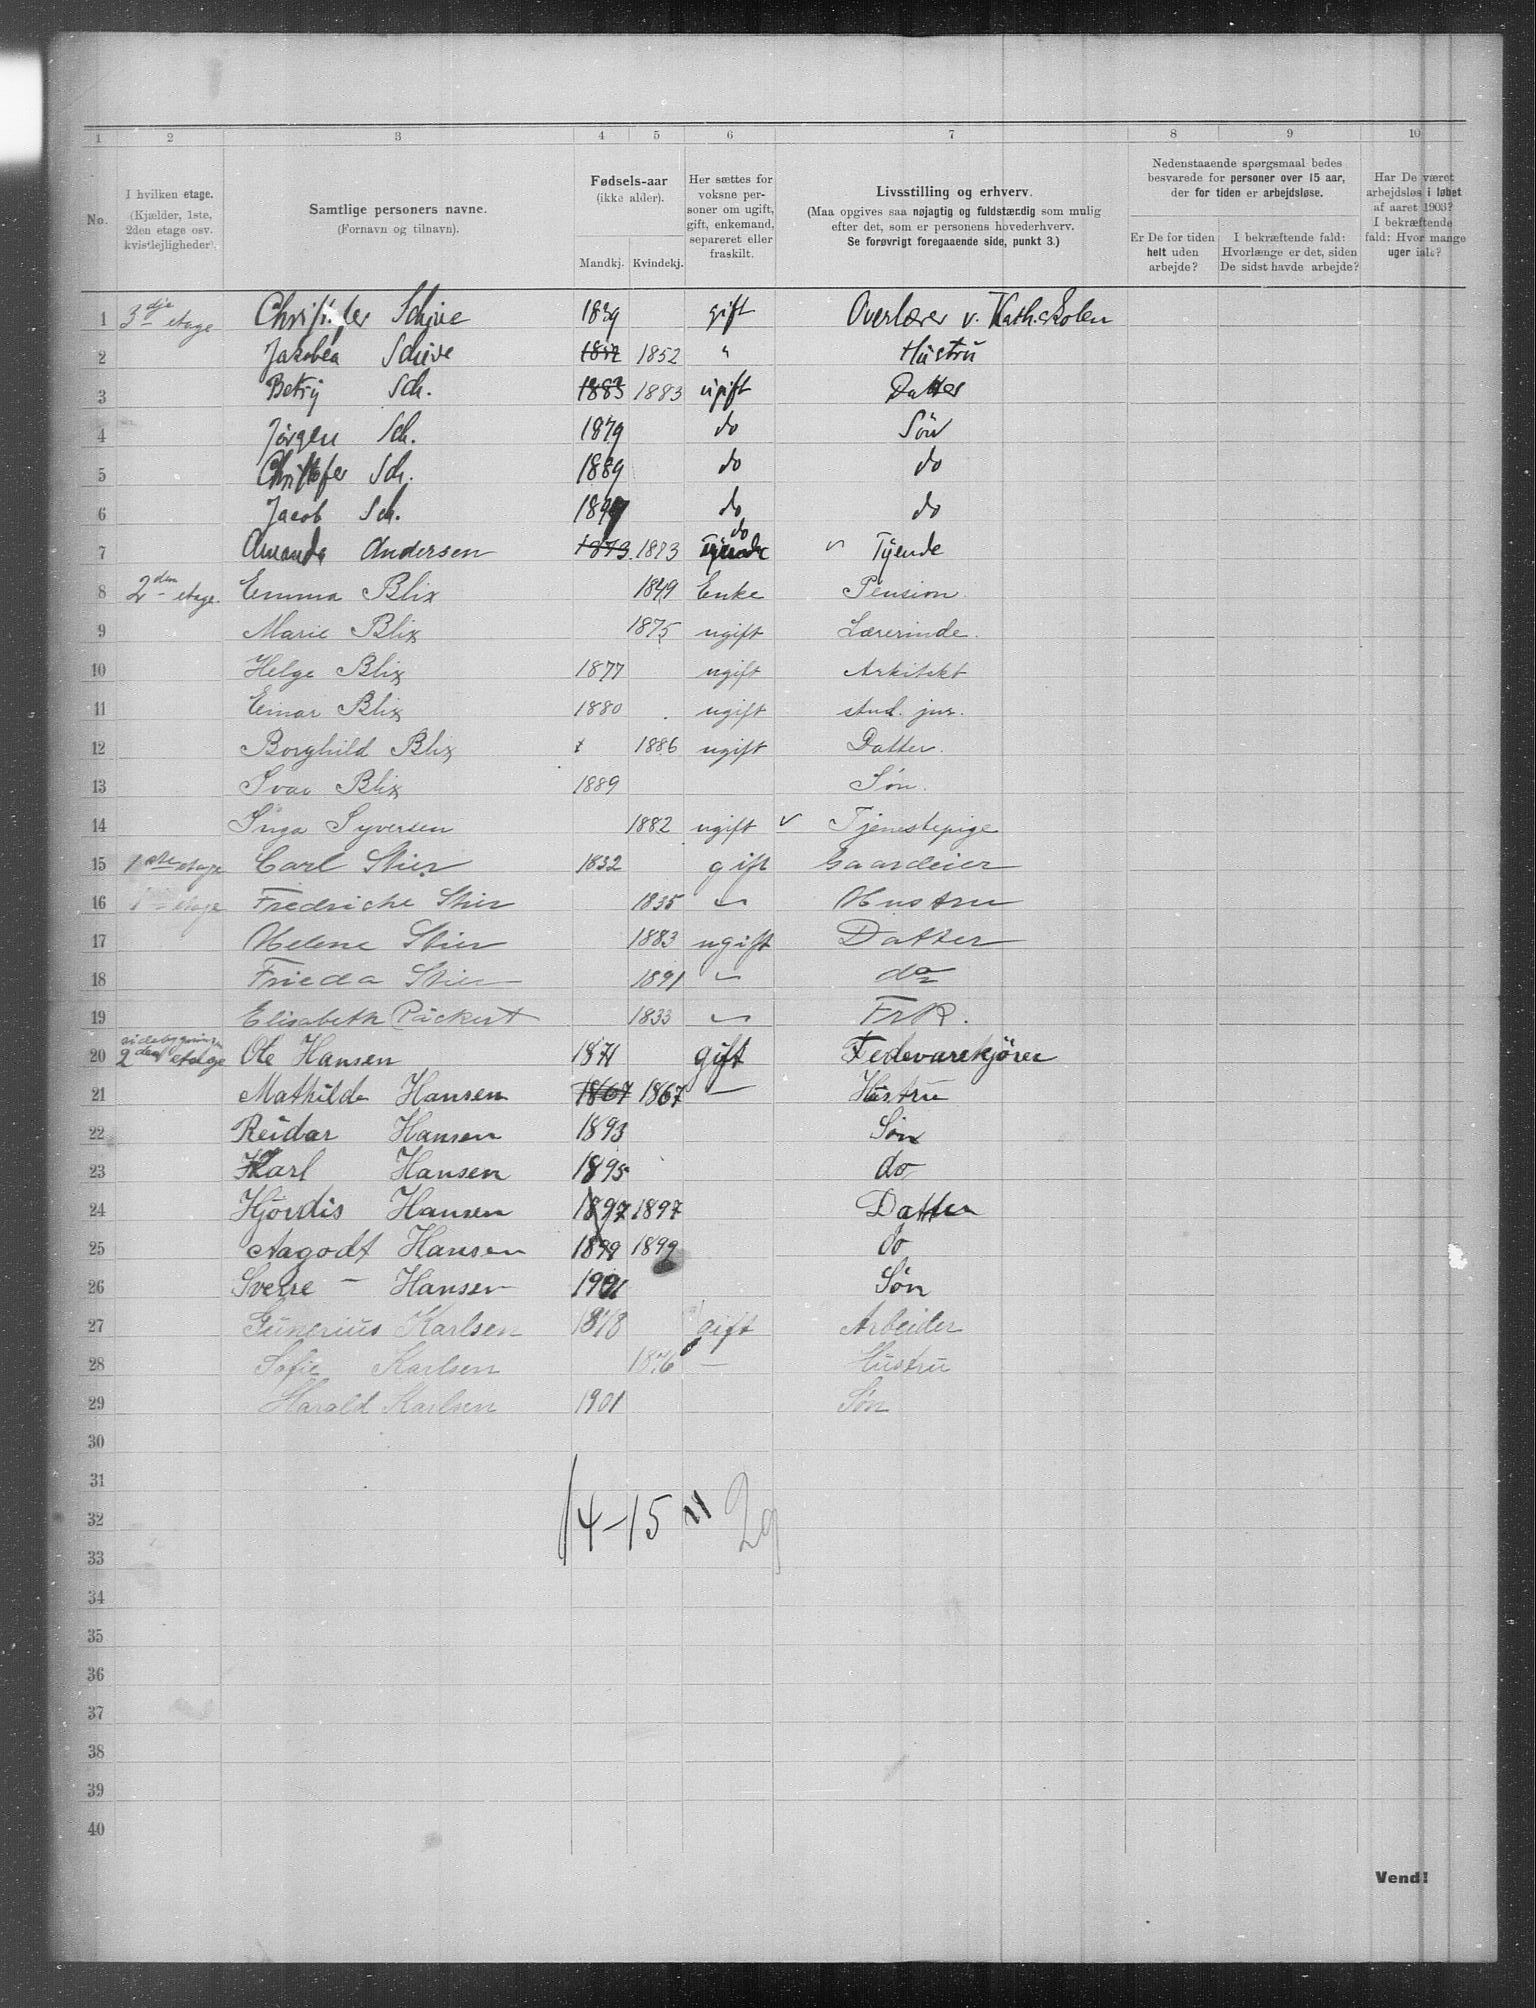 1 2 3 4 5 6 7 8 9 10
No.
I hvilken etage.
(Kjælder, 1ste,
2den etage osv.
kvistlejligheder).
Samtlige personers navne.
(Fornavn og tilnavn).
Fødsels-aar
(ikke alder).
Mandkj. Kvindekj.
Her sættes for
voksne per-
soner om ugift,
gift, enkemand,
separeret eller
fraskilt.
Livsstilling og erhverv.
(Maa opgives saa nøjagtig og fuldstændig som mulig
efter det, som er personens hovederhverv.
Se forøvrigt foregaaende side, punkt 3.)
Nedenstaaende spørgsmaal bedes
besvarede for personer over 15 aar,
der for tiden er arbejdsløse.
Er De for tiden
helt uden
arbejde?
I bekræftende fald:
Hvorlænge er det, siden
De sidst havde arbejde?
Har De været
arbejdsløs i løbet
af aaret 1903?
I bekræftende
fald: Hvor mange
uger ialt?
1 3dje etage Christofer Schive 1839 gift Overlærer v. Kath.skolen
2 Jakobea Schive 1852 1852 " Hustru
3 Betzy Sch. 1883 1883 ugift Datter
4 Jørgen Sch. 1879 do Søn
5 Christofer Sch. 1889 do do
6 Jacob Sch. do do
7 Amanda Andersen 1873 1873 Tyende do v Tyende
8 2den etage. Emma Blix 1849 Enke Pension.
9 Marie Blix 1875 ugift Lærerinde.
10 Helge Blix 1877 ugift Arkitekt
11 Einar Blix 1880 ugift stud. jur.
12 Borghild Blix 1886 ugift Datter.
13 Ivar Blix 1889 Søn.
14 Inga Syversen 1882 ugift v Tjenestepige
15 1ste etage Carl Stier 1832 gift Gaardeier
16 1ste etage Fredriche Stier 1835 " Hustru
17 Helene Stier 1883 ugift Datter
18 Frieda Stier 1891 " do
19 Elisabeth Päckert 1833 " Frk.
sidebygningen
20 2den etage Ole Hansen 1871 gift Fedevarekjører
21 Mathilde Hansen 1867 1867 — Hustru
22 Reidar Hansen 1893 Søn
23 Karl Hansen 1895 do
24 Hjørdis Hansen 1897 1897 Datter
25 Aagodt Hansen 1899 1899 do
26 Sverre — Hansen 1901 Søn
27 Gunerius Karlsen 1878 gift Arbeider
28 Sofie Karlsen 1876 — Hustru
29 Harald Karlsen 1901 Søn
30
31
32 14-15 = 29
33
34
35
36
37
38
39
40
Vend!